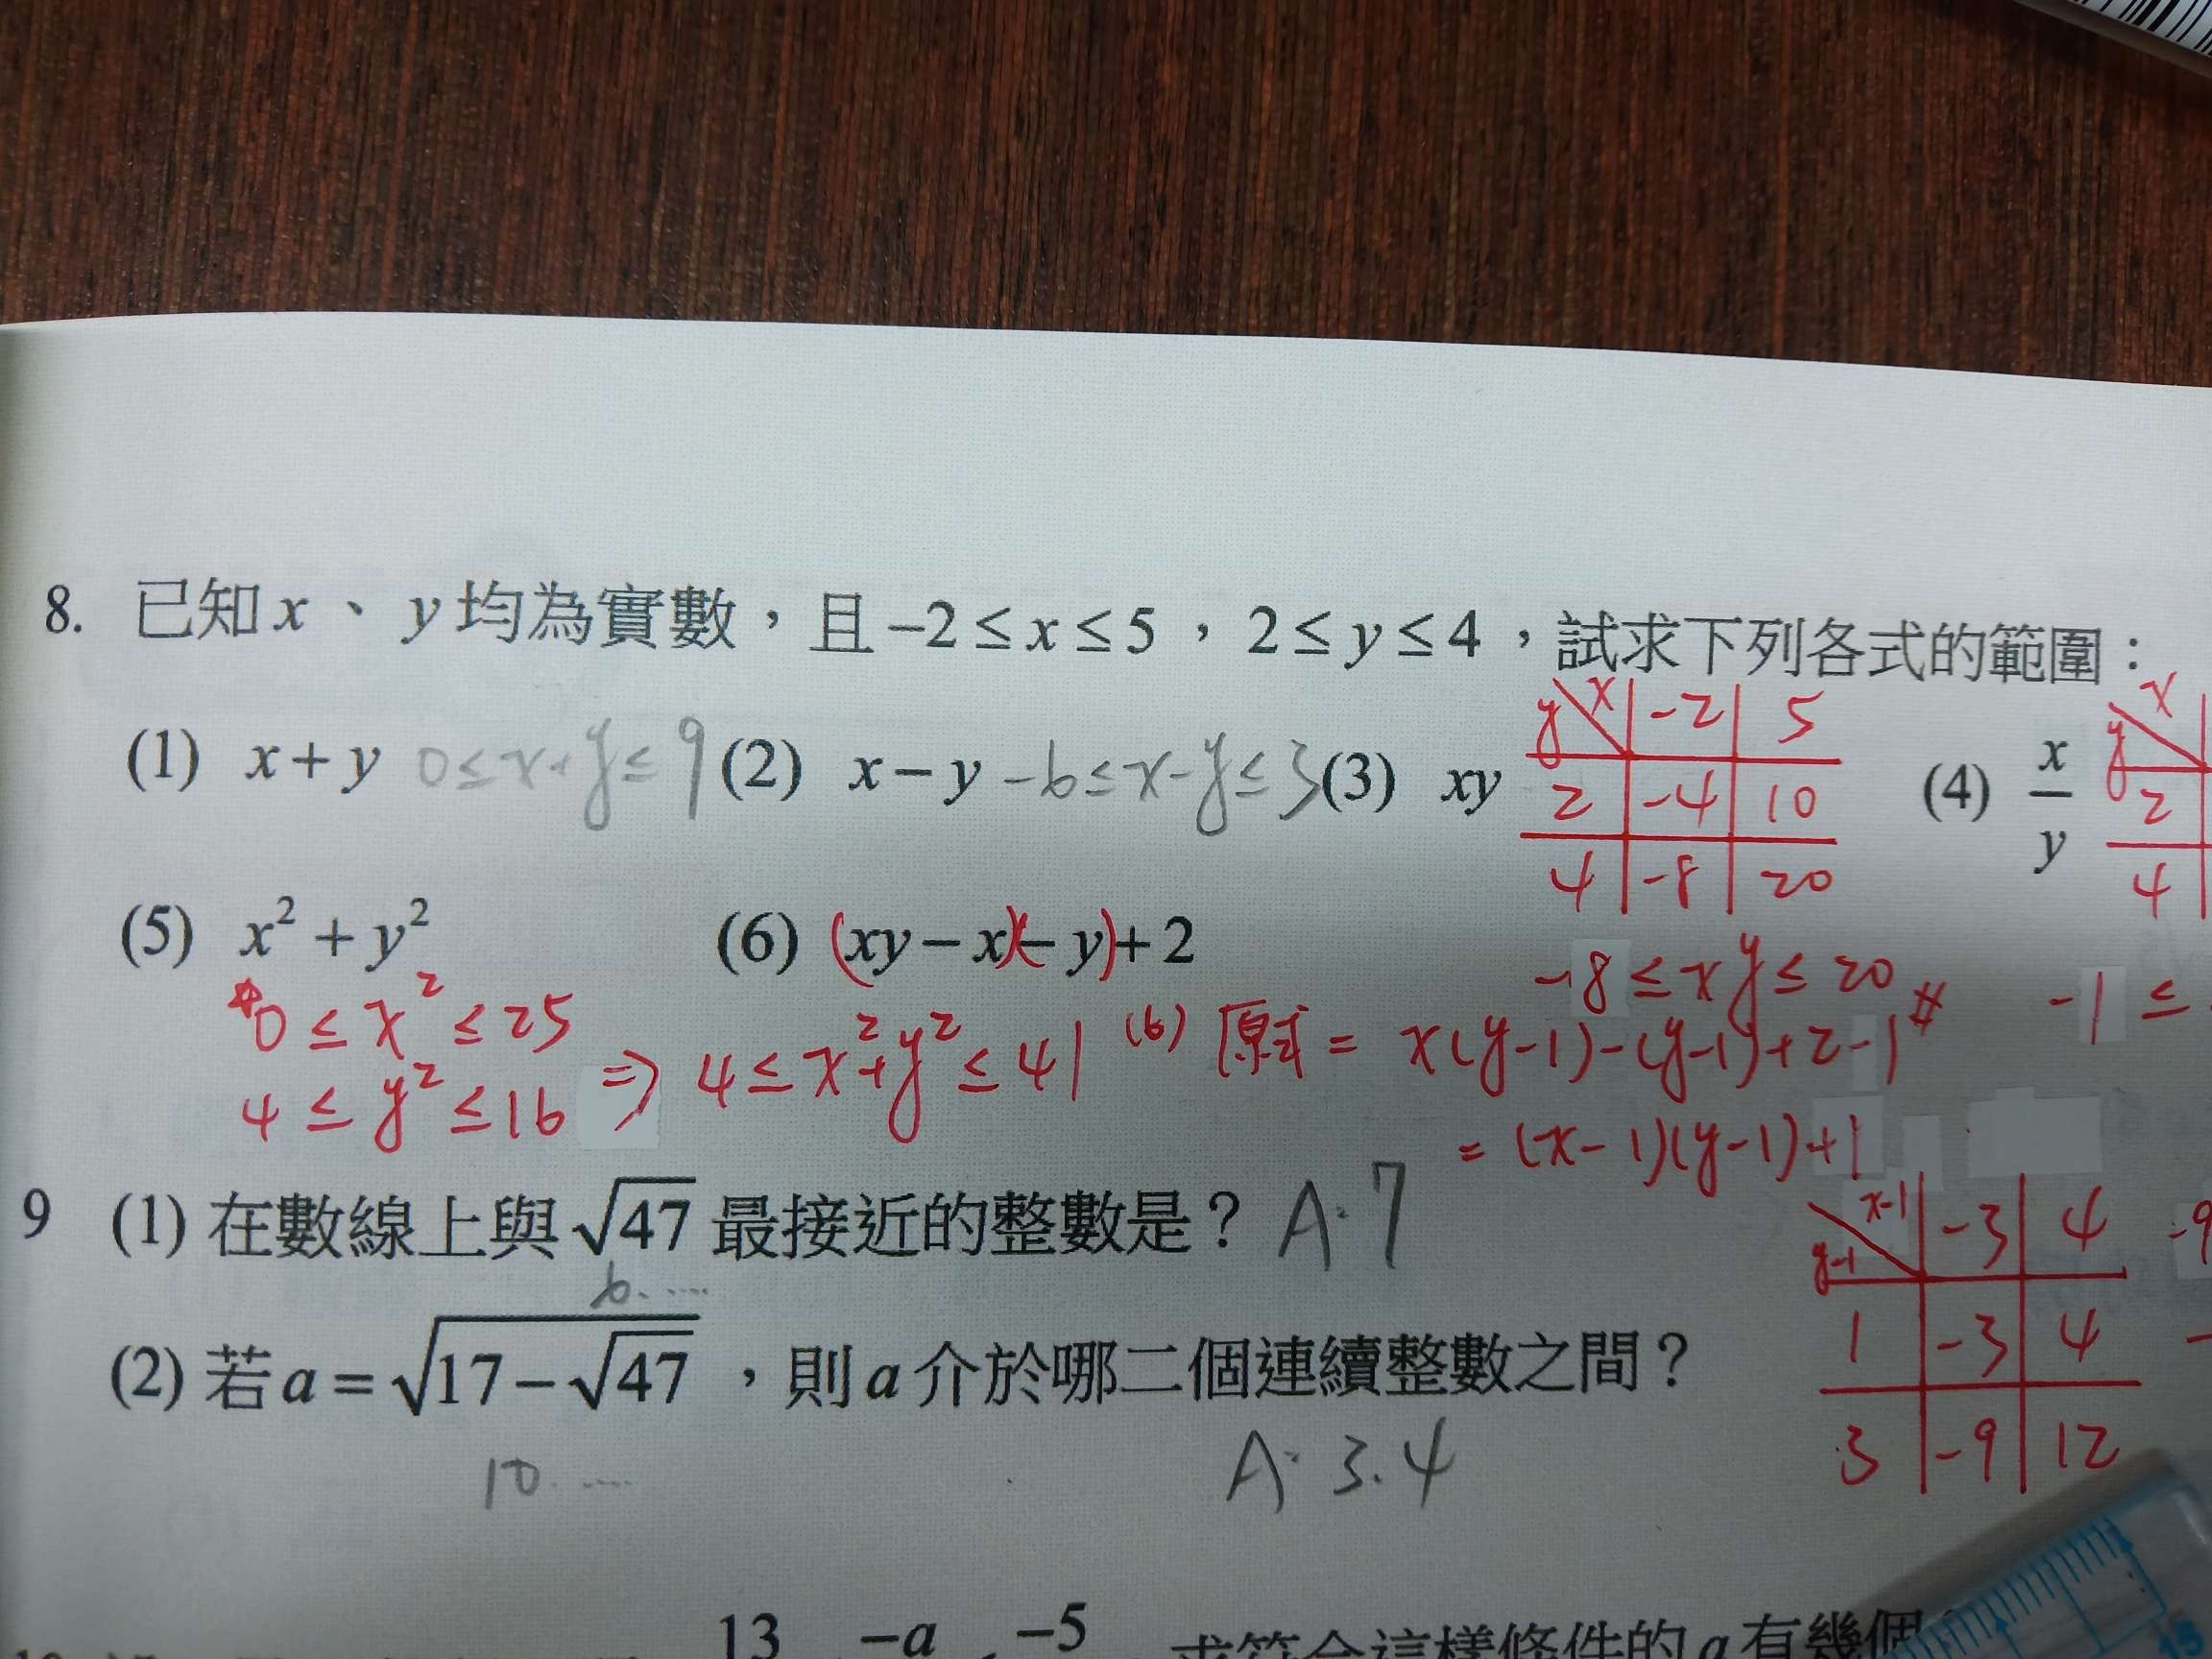 8. 已知 x、y 均為實數，且 −2 ≤ x ≤ 5，2 ≤ y ≤ 4，試求下列各式的範圍：
(1) x + y 0≤x+y≤9 (2) x − y -6≤x-y≤3 (3) xy (4) x/y
y\x | -2 | 5
2 | -4 | 10
4 | -8 | 20
y\x
2
4
-8 ≤ xy ≤ 20 #
-1 ≤
(5) x² + y² (6) (xy − x)(− y) + 2
0 ≤ x² ≤ 25
4 ≤ y² ≤ 16 ⇒ 4 ≤ x²+y² ≤ 41
(6) 原式 = x(y-1)-(y-1)+2-1
= (x-1)(y-1)+1
y-1\x-1 | -3 | 4
1 | -3 | 4
3 | -9 | 12
-9
9 (1) 在數線上與 √47 最接近的整數是？ A: 7
6.....
(2) 若 a = √(17 − √47)，則 a 介於哪二個連續整數之間？
10.....
A: 3.4
13 −a −5 求符合這樣條件的 a 有幾個
15